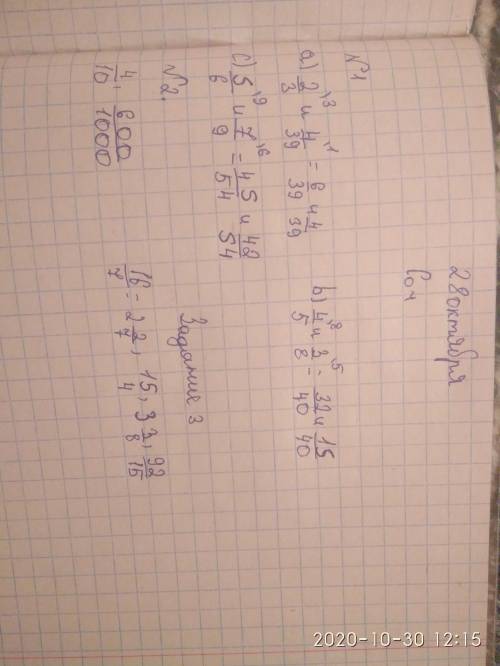 28 октября
Соч
№1
a) 2/3 ,13 и 4/39 ,1 = 6/39 и 4/39
b) 4/5 ,8 и 3/8 ,5 = 32/40 и 15/40
c) 5/6 ,9 и 7/9 ,6 = 45/54 и 42/54
№2.
4/10, 600/1000
Задание 3
16/7 = 2 2/7, 15/4, 3 3/8, 92/15
2020-10-30 12:15